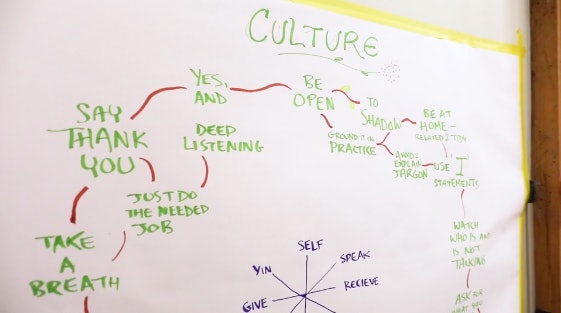 CULTURE
YES,
AND
BE
OPEN
TO
SHADOW
BE AT
HOME -
SAY
THANK
YOU
DEEP
LISTENING
GROUND IT IN
PRACTICE
AVOID &
EXPLAIN
JARGON
USE I
STATEMENTS
JUST DO
THE NEEDED
JOB
TAKE
A
BREATH
WATCH
WHO IS AND
IS NOT
TALKING
ASK FOR
WHAT YOU
SELF
YIN
SPEAK
GIVE
RECIEVE